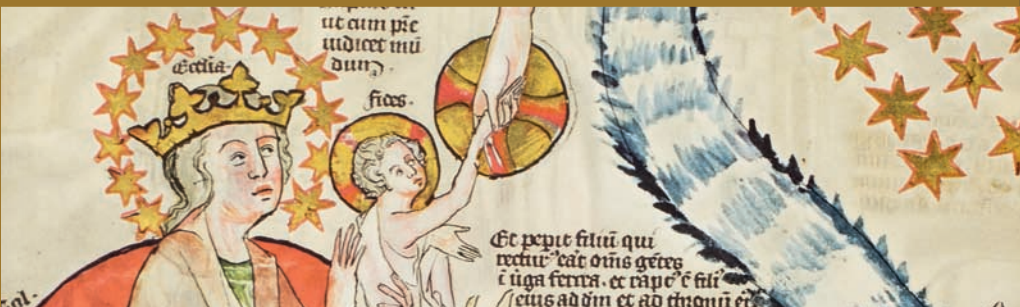 ut cum pr̄e
iudicet mū
dum.
Ecclia.
fides.
Et pepit filiū qui
rectur̄ erat om̄s gētes
ī uga ferrea. et rapt᷒ ē fili᷒
eius ad dm̄ et ad thronū ei᷒
sol.